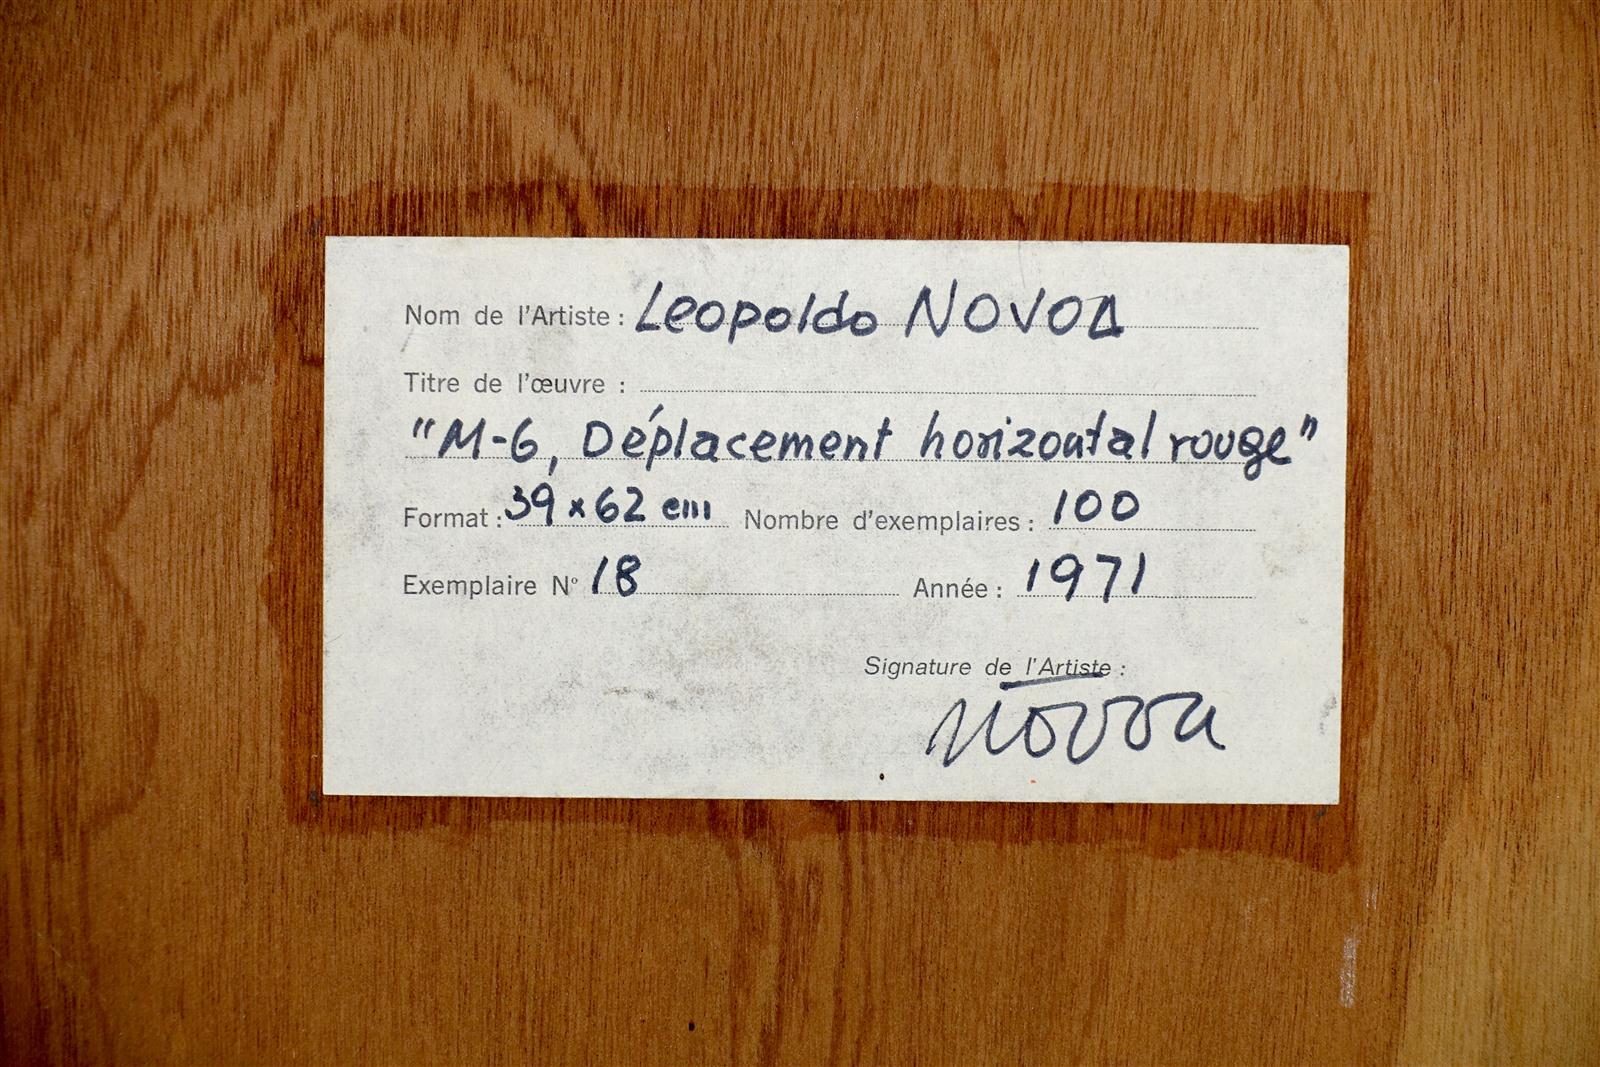 Nom de l'Artiste : Leopoldo NOVOA
Titre de l'œuvre :
"M-6, Déplacement horizontal rouge"
Format : 39 x 62 cm Nombre d'exemplaires : 100
Exemplaire N° 18 Année : 1971
Signature de l'Artiste :
novoa